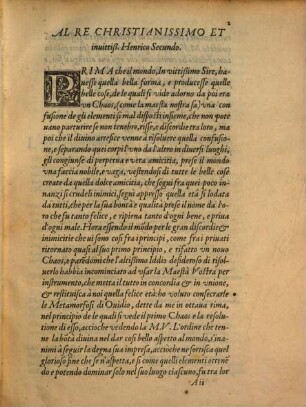 2
AL RE CHRISTIANISSIMO ET
inuittiss. Henrico Secundo.
PRIMA che il mondo, Inuittissimo Sire, ha-
uesse quella bella forma, e producesse quelle
belle cose, de le quali si vide adorno da poi era
vn Chaos, (come la maestà nostra sa) vna con
fusione de gli elementi sì mal disposti insieme, che non pote
uano parturire se non tenebre, risse, e discordie tra loro, ma
poi che il diuino artefice venne a risoluere quella confusio-
ne, e separando quei corpi l'vno da l'altro in diuersi luoghi,
gli congiunse di perpetua e vera amicitia, prese il mondo
vna faccia nobile, e vaga, vestendosi di tutte le belle cose
create da quella dolce amicitia, che seguì fra quei poco in-
nanzi sì crudeli inimici, segui appresso quella età sì lodata
da tutti, che per la sua bontà e qualità prese il nome da l'o-
ro che fu tanto felice, e ripiena tanto d'ogni bene, e priua
d'ogni male. Hora essendo il mõdo per le gran discordie &
inimicitie che ui sono così fra i principi, come fra i priuati
ritornato quasi al suo primo principio, e rifatto vn nouo
Chaos, e parendomi che l'altissimo Iddio desideroso di ri-
soluerlo habbia incominciato ad vsar la Maestà Vostra per
instrumento, che metta il tutto in concordia & in vnione,
& restituisca à noi quella felice età: ho voluto consacrarle
le Metamorfosi di Ouidio, dette da me in ottaua rima,
nel principio de le quali si vede il primo Chaos e la resolu-
tione di esso, accioche vedendo la M.V. L'ordine che ten-
ne la bõtà diuina nel dar così bello aspetto al mondo, s'ina-
nimi à seguir la degna sua impresa, accioche ne sortisca quel
glorioso fine che se n'aspetta, e sì come quelli elementi ottene
do e potendo dominar solo nel suo luogo ciascuno, fu tra lor
A ii